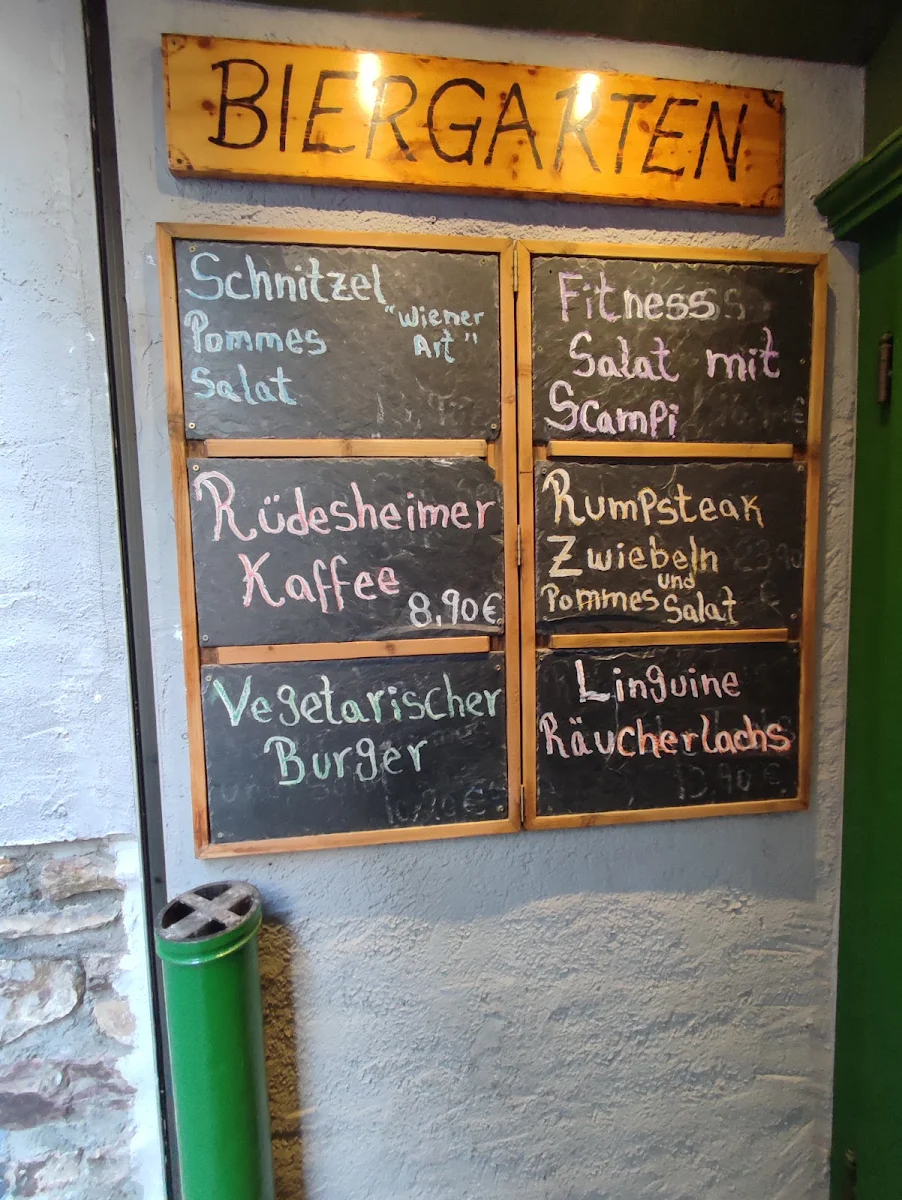 BIERGARTEN
Schnitzel
"Wiener
Art"
Pommes
Salat
Rüdesheimer
Kaffee
8,90€
Vegetarischer
Burger
Fitness
Salat mit
Scampi
Rumpsteak
Zwiebeln
und
Pommes Salat
Linguine
Räucherlachs